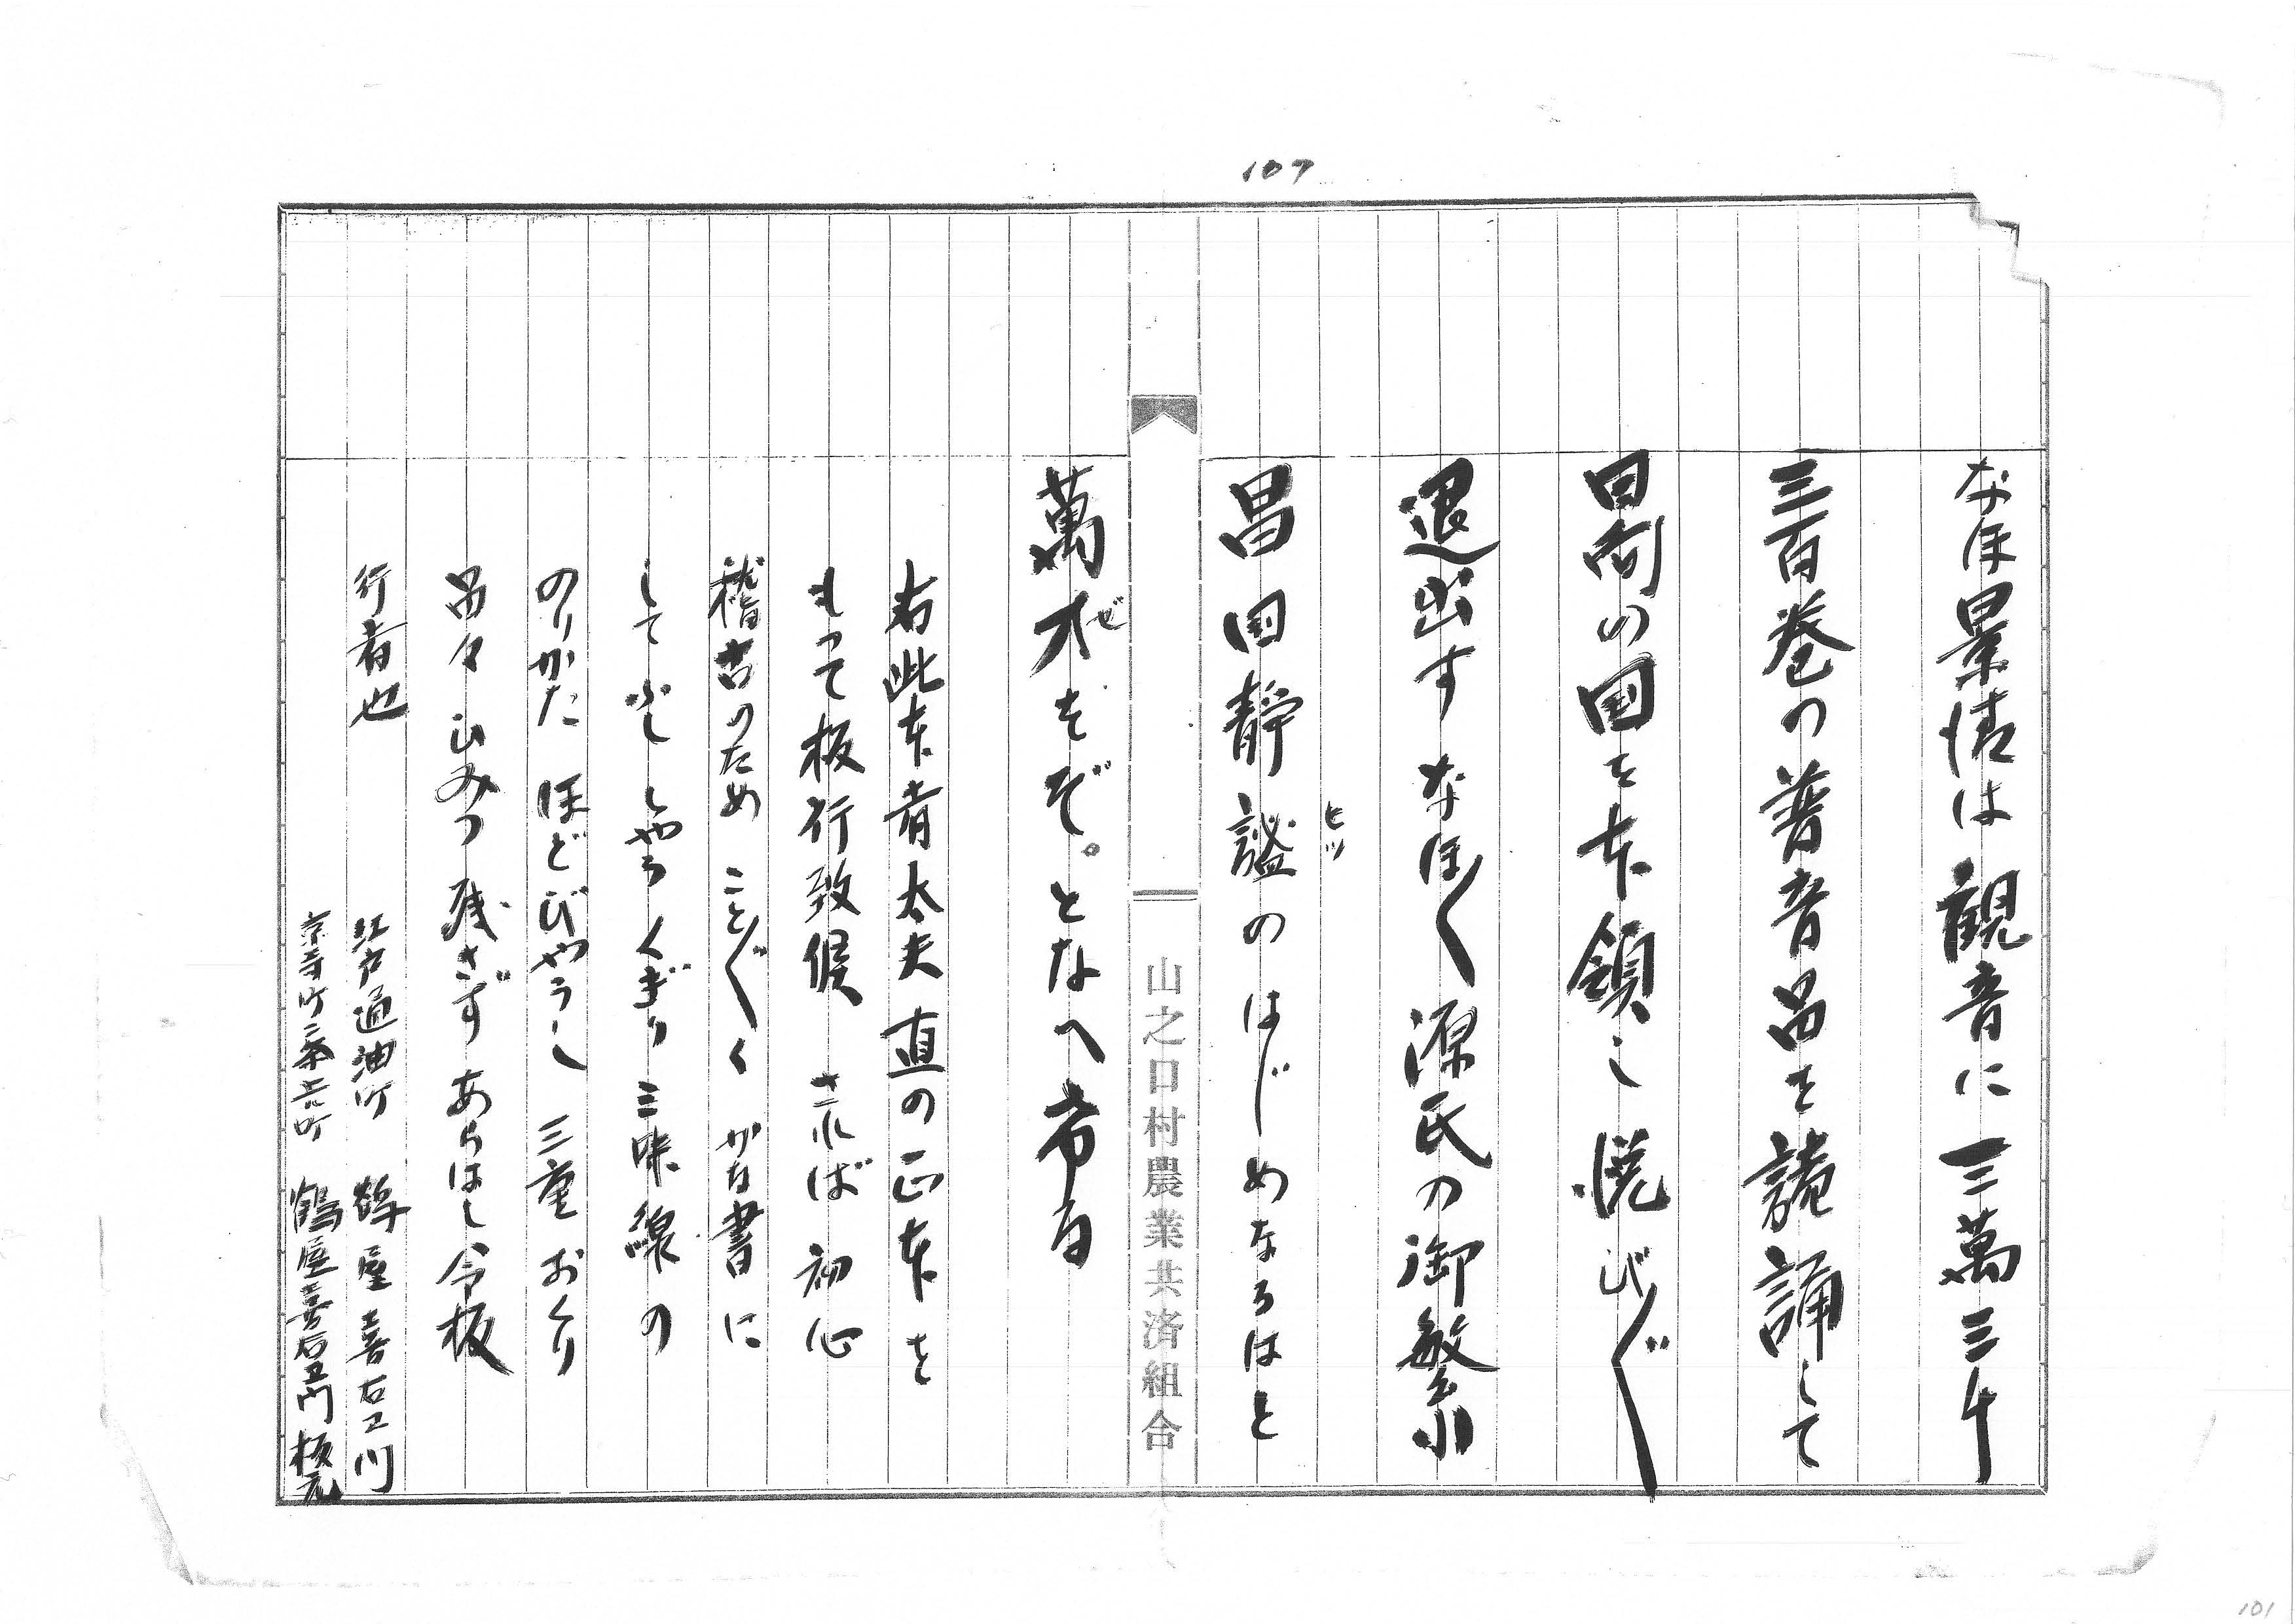 107
なほ景清は観音に三萬三千
三百巻の普音品を読誦して
日向の国を本領し悦び〴〵
退出すなほ〳〵源氏の御繁
昌国静謐のはじめなるはと
ヒツ
萬ぜをぞ。となへ
右此本者太夫直の正本を
もって板行致候 されば 初心
稽古のため こと〴〵く かな書に
して しやう くぎり 三味線の
のりかた ほどびやうし 三重 おくり
品々 ひみつ 残さず あらはし令板
行者也
江戸通油町 鶴屋喜右エ門
京寺町二条上ル町 鶴屋喜右エ門 板元
山之口村農業共済組合
101